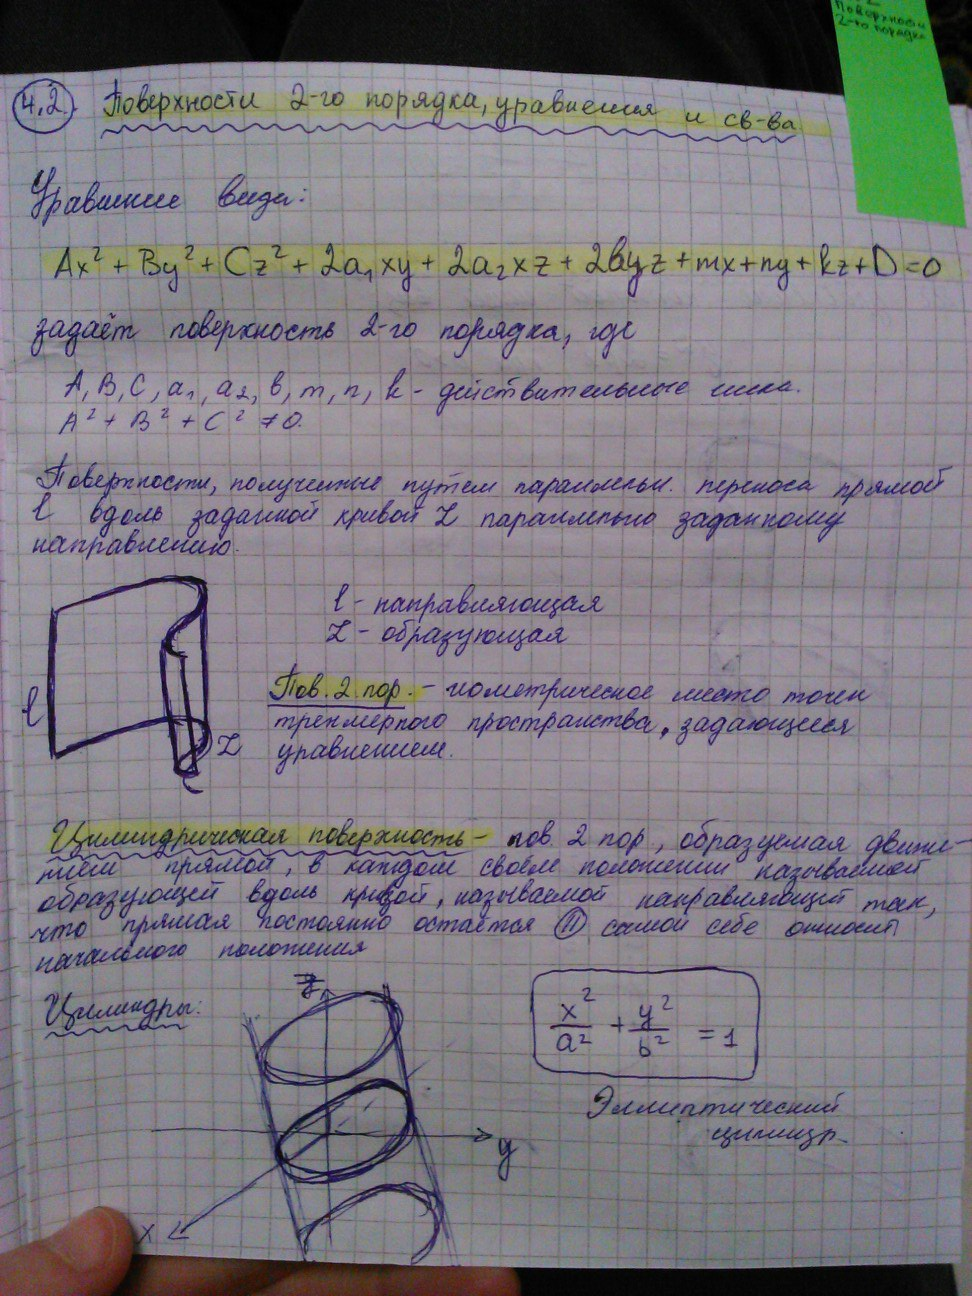 2
Поверхности
2-го порядка
4.2. Поверхности 2-го порядка, уравнения и св-ва
Уравнение вида:
Ax² + By² + Cz² + 2a₁xy + 2a₂xz + 2byz + mx + ny + kz + D = 0
задаёт поверхность 2-го порядка, где
A, B, C, a₁, a₂, b, m, n, k - действительные числа.
A² + B² + C² ≠ 0.
Поверхности, полученные путём параллельн. переноса прямой
l вдоль заданной кривой L параллельно заданному
направлению.
l - направляющая
L - образующая
l
L
Пов. 2 пор. - геометрическое место точек
трехмерного пространства, задающееся
уравнением.
Цилиндрическая поверхность - пов 2 пор, образуемая движе-
нием прямой, в каждом своем положении называемой
образующей вдоль кривой, называемой направляющей так,
что прямая постоянно остаётся || самой себе относит
начального положения
Цилиндры:
z
x²/a² + y²/b² = 1
Эллиптический
цилиндр
y
x